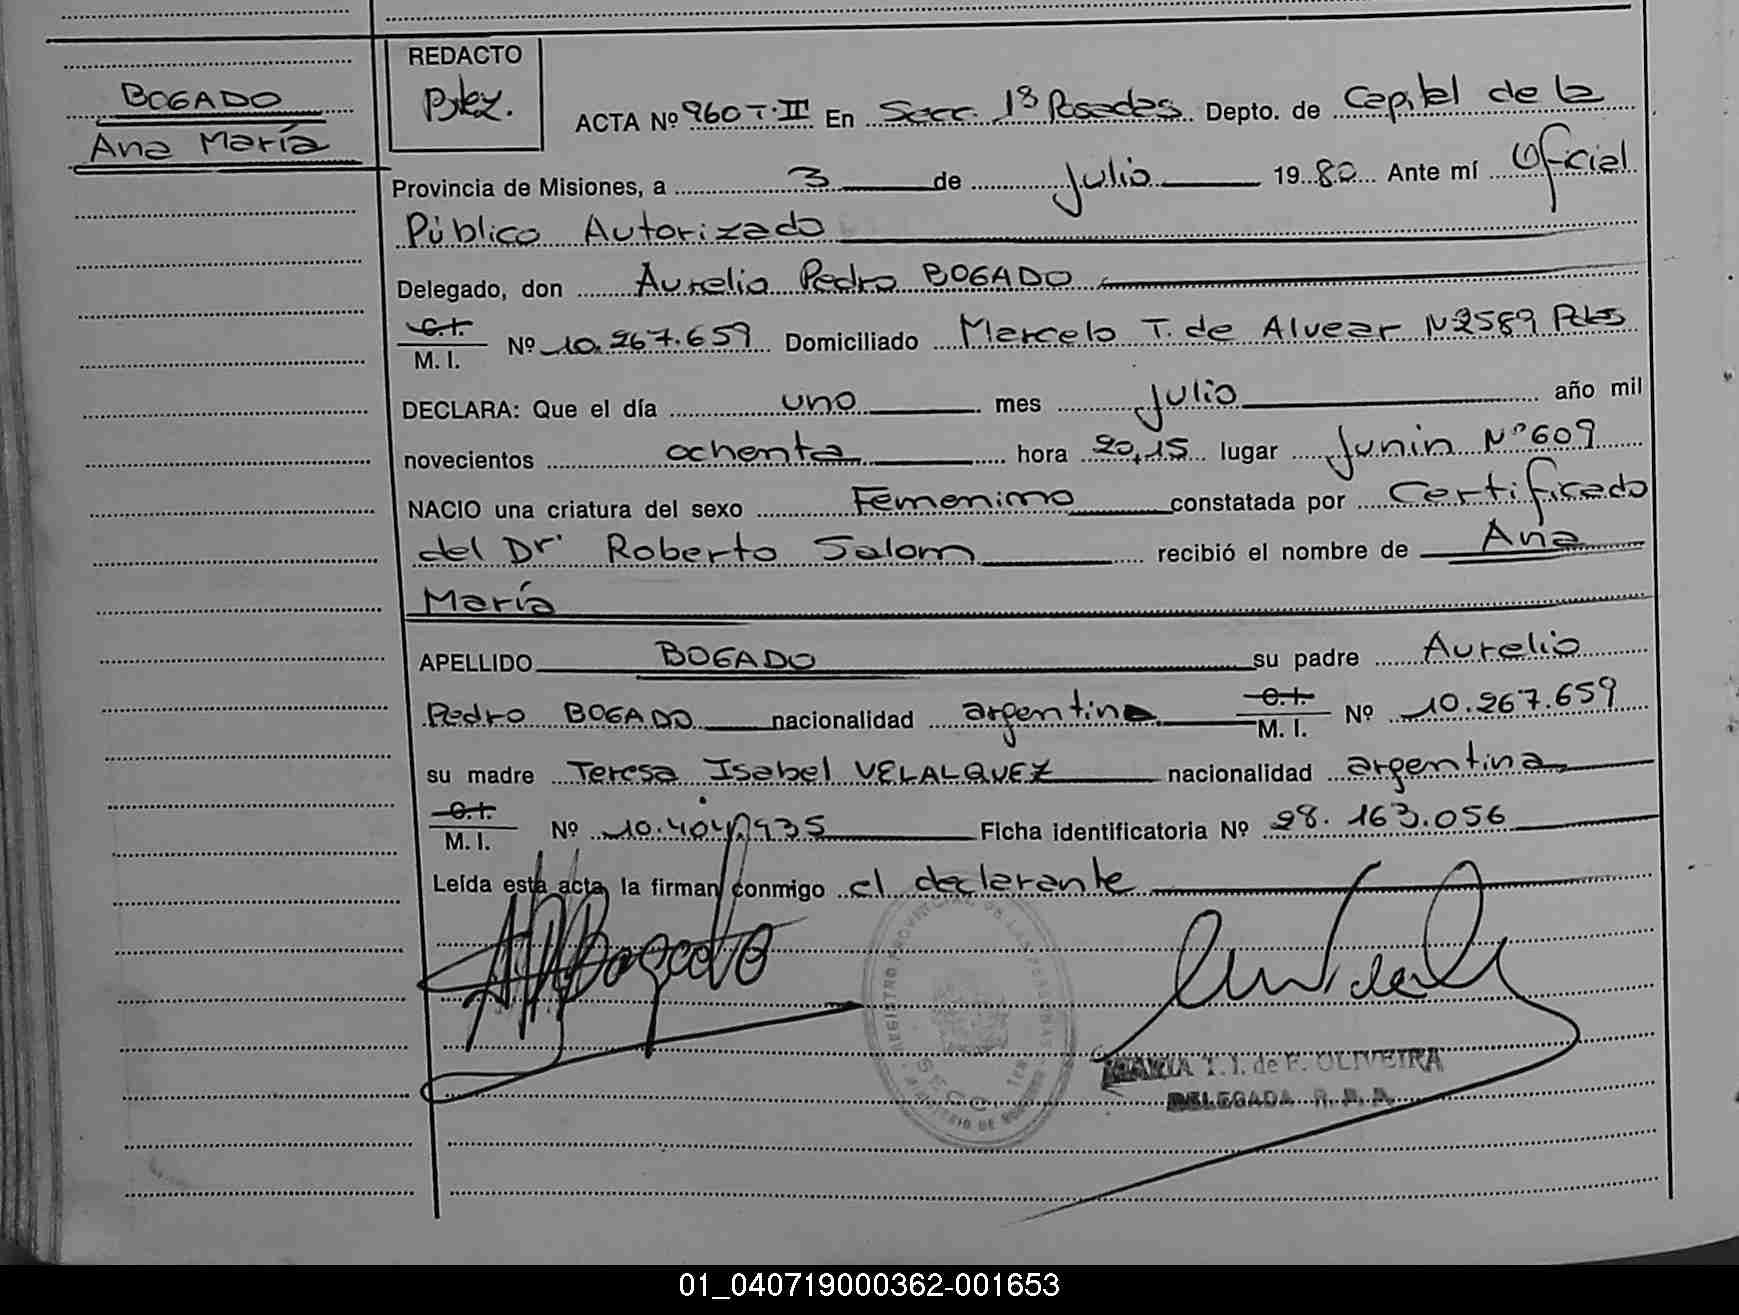 BOGADO
Ana María
REDACTO
ACTA Nº 960 T·III En Secc. 1ª Posadas Depto. de Capital de la
Provincia de Misiones, a 3 de Julio 1980 Ante mí Oficial
Público Autorizado
Delegado, don Aurelio Pedro BOGADO
C.I.
M. I. Nº 10.267.659 Domiciliado Marcelo T. de Alvear Nº2589 Pdas
DECLARA: Que el día uno mes Julio año mil
novecientos ochenta hora 20,15 lugar Junin Nº609
NACIO una criatura del sexo Femenino constatada por Certificado
del Dr. Roberto Salom recibió el nombre de Ana
María
APELLIDO BOGADO su padre Aurelio
Pedro BOGADO nacionalidad argentina C.I.
M. I. Nº 10.267.659
su madre Teresa Isabel VELALQUEZ nacionalidad argentina
C.I.
M. I. Nº 10.404.935 Ficha identificatoria Nº 28.163.056
Leída esta acta, la firman conmigo el declarante
REGISTRO PROVINCIAL DE LAS PERSONAS
SECC. 1ra
MARIA T. I. de F. OLIVEIRA
DELEGADA R. P. P.
01_040719000362-001653